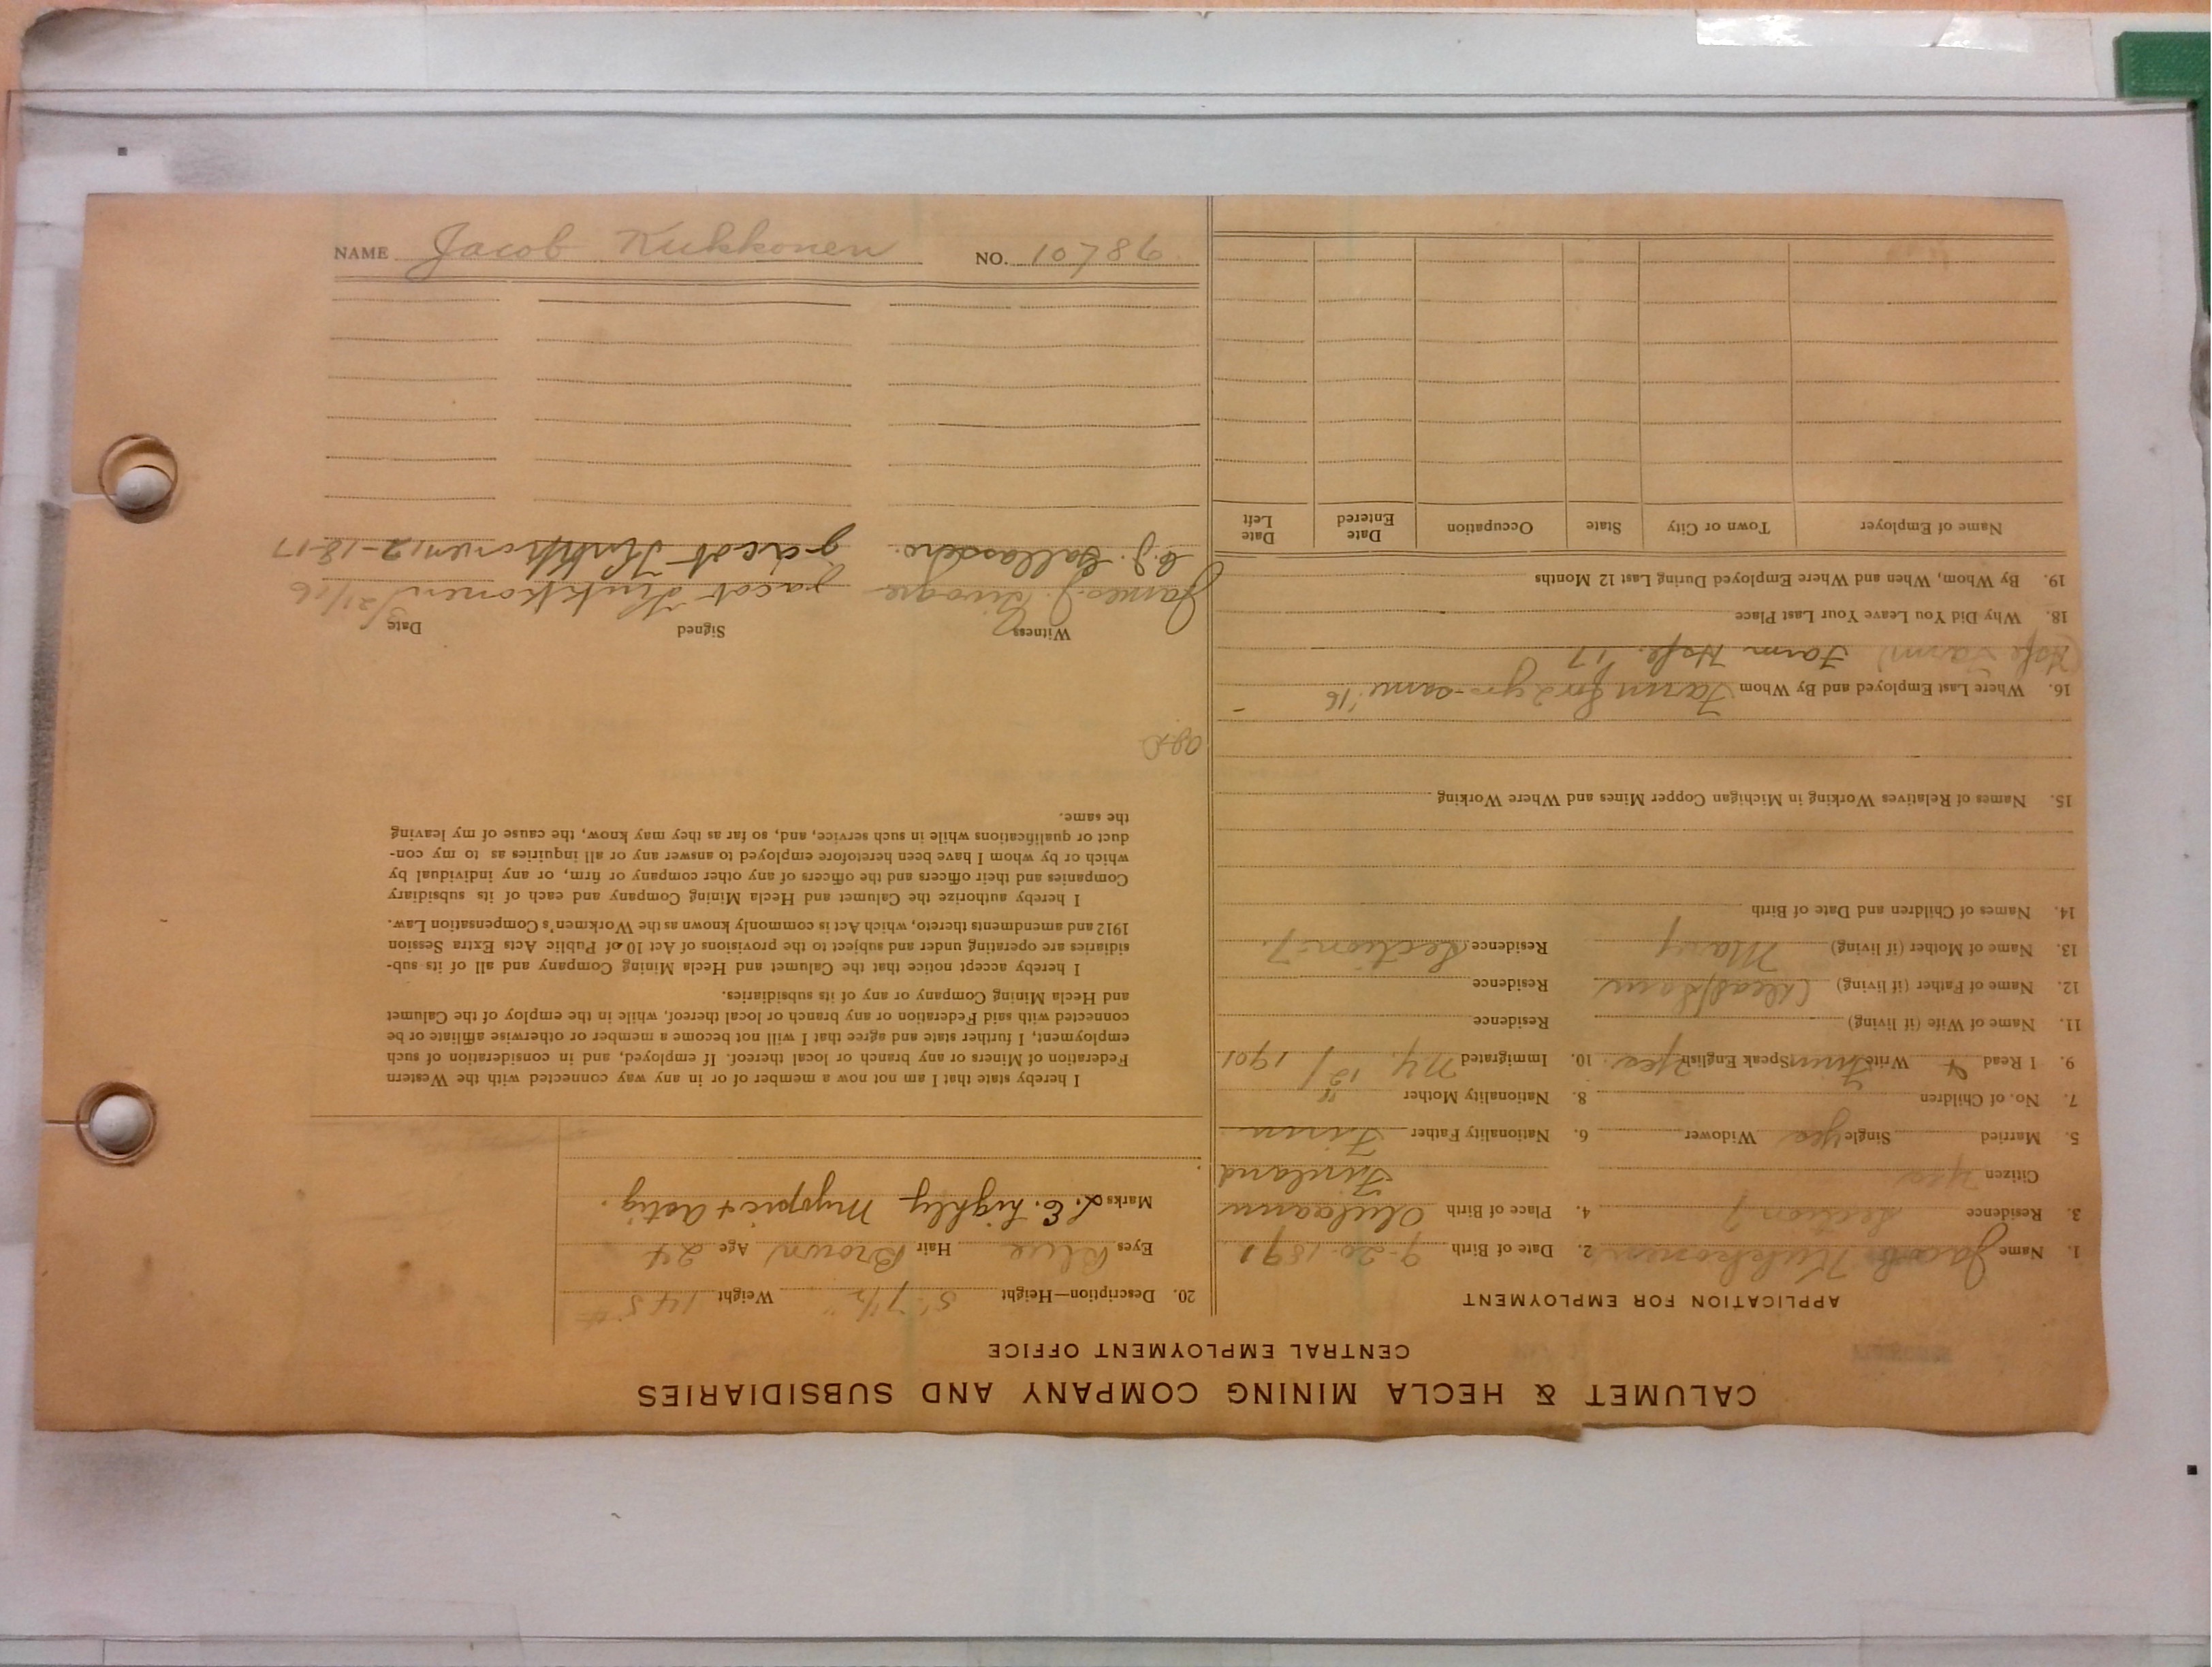 CALUMET & HECLA MINING COMPANY AND SUBSIDIARIES
CENTRAL EMPLOYMENT OFFICE
APPLICATION FOR EMPLOYMENT
1. Name Jacob Kukkonen 2. Date of Birth 9-20-1891
3. Residence Section 7 4. Place of Birth Oulu
Citizen Yes Finland
5. Married Single Yes Widower 6. Nationality Father Finn
7. No. of Children 8. Nationality Mother "
9. I Read & Write Finn Speak English Yes 10. Immigrated N.Y. 12/ 1901
11. Name of Wife (if living) Residence
12. Name of Father (if living) (dead) Sam Residence
13. Name of Mother (if living) Mary Residence Section 7.
14. Names of Children and Date of Birth
15. Names of Relatives Working in Michigan Copper Mines and Where Working
16. Where Last Employed and By Whom Farm for 2 yrs - same '16
Farm '17
18. Why Did You Leave Your Last Place
19. By Whom, When and Where Employed During Last 12 Months
Name of Employer Town or City State Occupation Date Entered Date Left
20. Description—Height 5' 7 1/2" Weight 145 #
Eyes Blue Hair Brown Age 24
Marks L. E. highly myopic + astig.
I hereby state that I am not now a member of or in any way connected with the Western
Federation of Miners or any branch or local thereof. If employed, and in consideration of such
employment, I further state and agree that I will not become a member or otherwise affiliate or be
connected with said Federation or any branch or local thereof, while in the employ of the Calumet
and Hecla Mining Company or any of its subsidiaries.
I hereby accept notice that the Calumet and Hecla Mining Company and all of its sub-
sidiaries are operating under and subject to the provisions of Act 10 of Public Acts Extra Session
1912 and amendments thereto, which Act is commonly known as the Workmen's Compensation Law.
I hereby authorize the Calumet and Hecla Mining Company and each of its subsidiary
Companies and their officers and the officers of any other company or firm, or any individual by
which or by whom I have been heretofore employed to answer any or all inquiries as to my con-
duct or qualifications while in such service, and, so far as they may know, the cause of my leaving
the same.
Witness Signed Date
James J. Jacob Kukkonen /21/16
C. J. Jacob Kukkonen 12-18-17
NAME Jacob Kukkonen NO. 10786